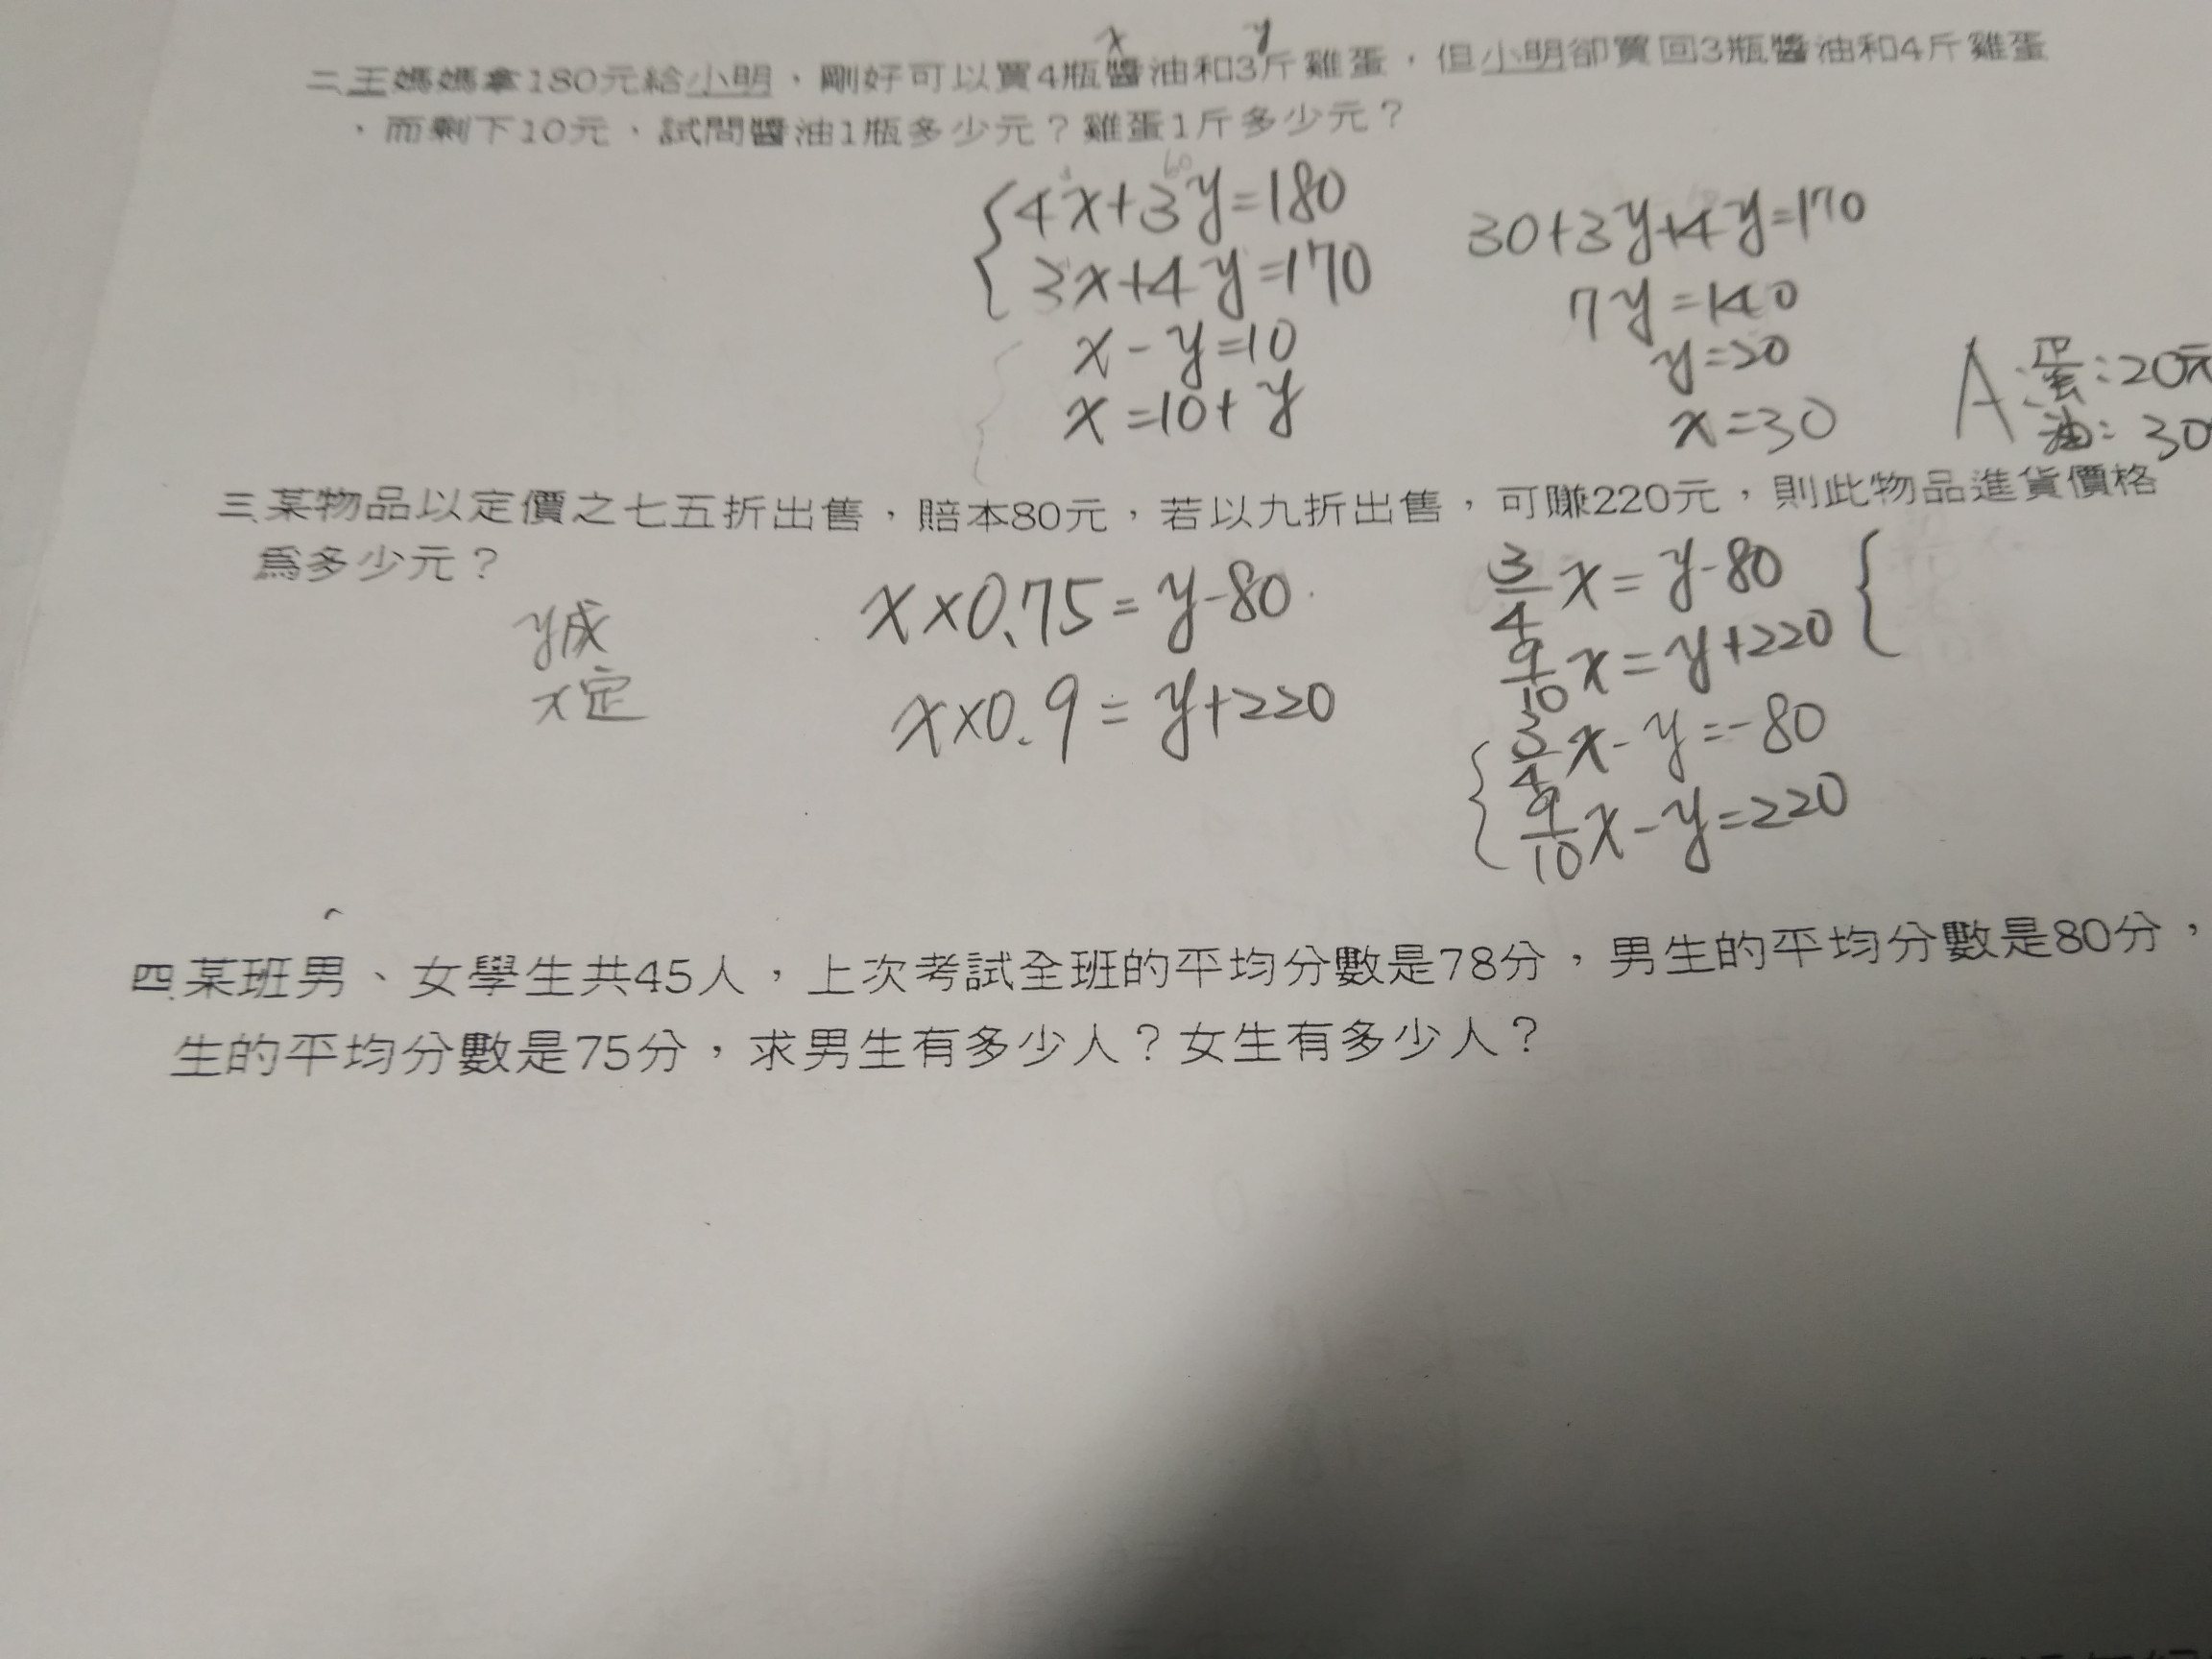 x y
二、王媽媽拿180元給小明，剛好可以買4瓶醬油和3斤雞蛋，但小明卻買回3瓶醬油和4斤雞蛋
，而剩下10元，試問醬油1瓶多少元？雞蛋1斤多少元？
4x+3y=180
3x+4y=170
x-y=10
x=10+y
30+3y+4y=170
7y=140
y=20
x=30
A:蛋:20元
油:30
三、某物品以定價之七五折出售，賠本80元，若以九折出售，可賺220元，則此物品進貨價格
為多少元？
y成
x定
x×0.75=y-80
x×0.9=y+220
3/4x=y-80
9/10x=y+220
3/4x-y=-80
9/10x-y=220
四、某班男、女學生共45人，上次考試全班的平均分數是78分，男生的平均分數是80分，
生的平均分數是75分，求男生有多少人？女生有多少人？